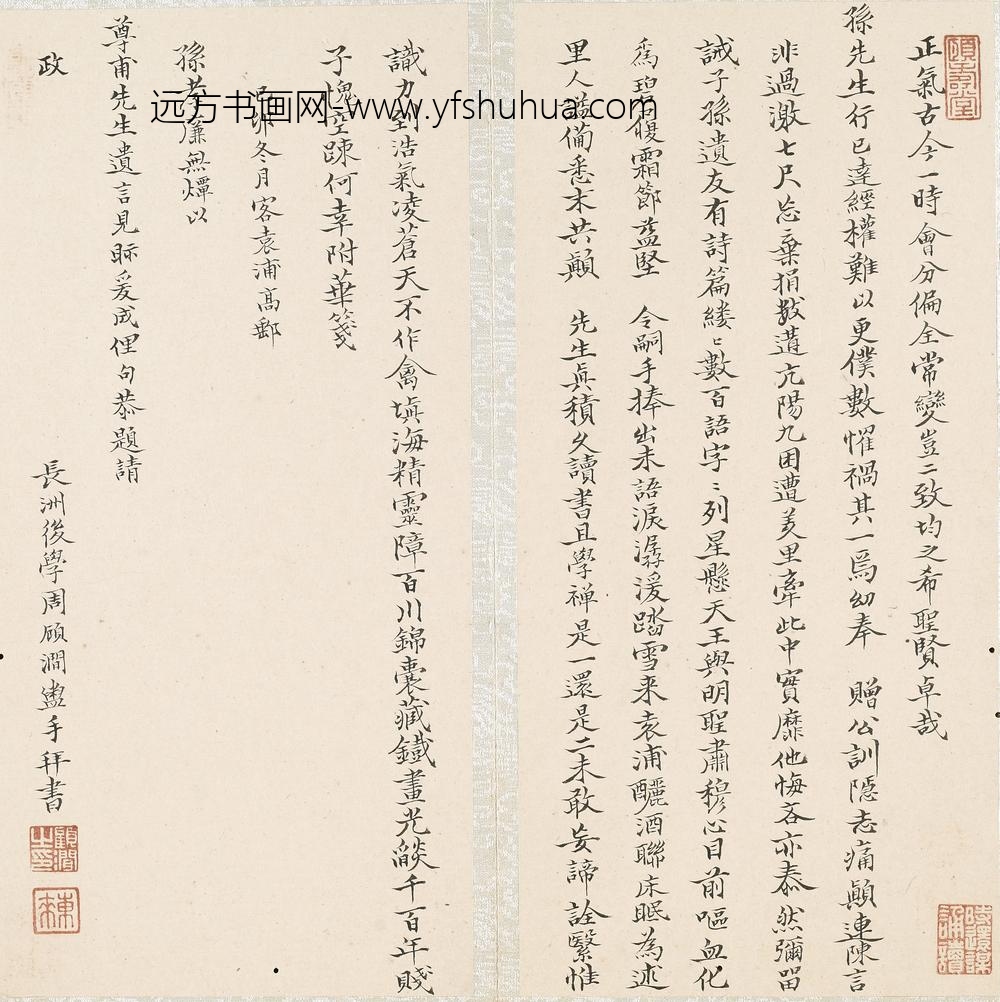 正氣古今一時會分偏全常變豈二致均之希聖賢卓哉
孫先生行已達經權難以更僕數惟禍其一焉幼奉 贈公訓隱志痛顛連陳言
非過激七尺忘棄捐數遘亢陽九困遭羑里牽此中實靡他悔吝亦泰然彌留
誡子孫遺友有詩篇縷〻數百語字〻列星懸天王與明聖肅穆心目前嘔血化
為碧 霜節益堅 令嗣手捧出未語淚潺湲踏雪来袁浦釃酒聯床眠為述
里人 備悉末共顛 先生真積久讀書且學禅是一還是二未敢妄諦詮繫惟
識力到浩氣凌蒼天不作禽填海精靈障百川錦囊藏鐵畫光燄千百年賤
子愧空踈何幸附華箋
冬月客袁浦髙郵
孫孝廉無燀以
尊甫先生遺言見眎爰成俚句恭題請
政
長洲後學周顧澗盥手拜書
远方书画网-www.yfshuhua.com